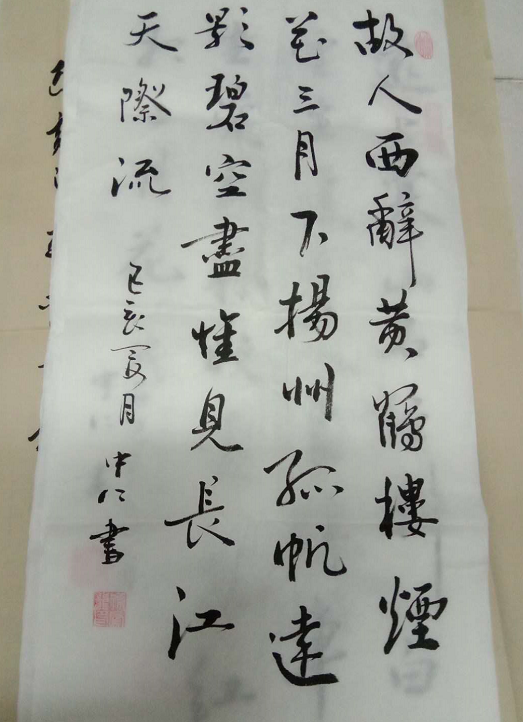 故人西辭黄鶴樓煙
花三月下揚州孤帆遠
影碧空盡惟見長江
天際流
己亥夏月
中仁書